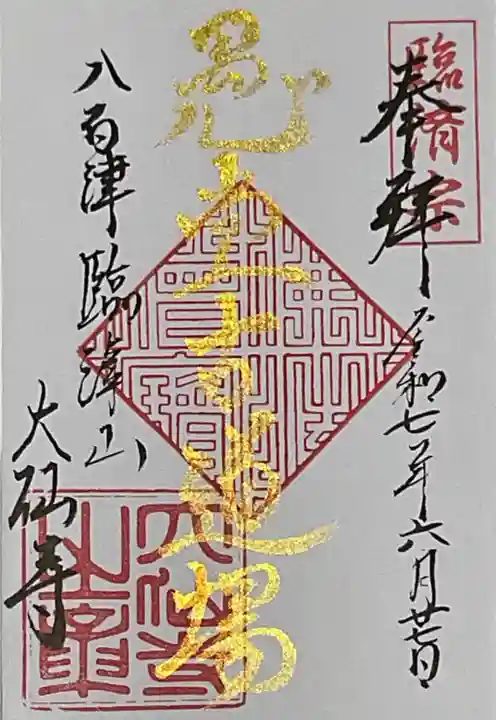 臨済宗
奉拝
令和七年六月廿七日
愚堂古道場
八百津臨滹山
大仙寺